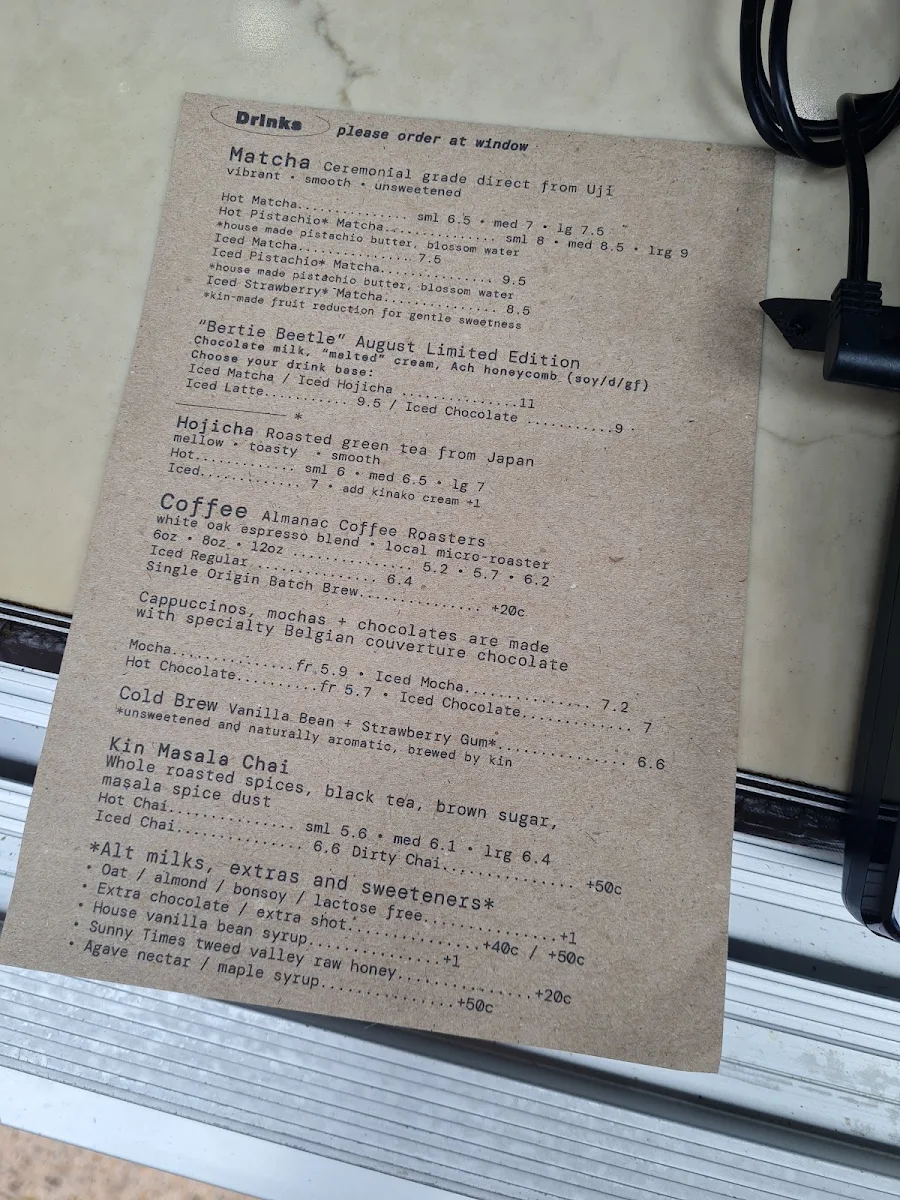 Drinks please order at window
Matcha Ceremonial grade direct from Uji
vibrant • smooth • unsweetened
Hot Matcha............... sml 6.5 • med 7 • lg 7.5
Hot Pistachio* Matcha............... sml 8 • med 8.5 • lrg 9
*house made pistachio butter, blossom water
Iced Matcha............... 7.5
Iced Pistachio* Matcha............... 9.5
*house made pistachio butter, blossom water
Iced Strawberry* Matcha............... 8.5
*kin-made fruit reduction for gentle sweetness
"Bertie Beetle" August Limited Edition
Chocolate milk, "malted" cream, Ach honeycomb (soy/d/gf)
Choose your drink base:
Iced Matcha / Iced Hojicha ...............11
Iced Latte.......... 9.5 / Iced Chocolate ...........9
______________ *
Hojicha Roasted green tea from Japan
mellow • toasty • smooth
Hot............. sml 6 • med 6.5 • lg 7
Iced............. 7 • add kinako cream +1
Coffee Almanac Coffee Roasters
white oak espresso blend • local micro-roaster
6oz • 8oz • 12oz ............... 5.2 • 5.7 • 6.2
Iced Regular ............... 6.4
Single Origin Batch Brew............... +20c
Cappuccinos, mochas + chocolates are made
with specialty Belgian couverture chocolate
Mocha...............fr 5.9 • Iced Mocha............... 7.2
Hot Chocolate..........fr 5.7 • Iced Chocolate............... 7
Cold Brew Vanilla Bean + Strawberry Gum*............... 6.6
*unsweetened and naturally aromatic, brewed by kin
Kin Masala Chai
Whole roasted spices, black tea, brown sugar,
masala spice dust
Hot Chai............... sml 5.6 • med 6.1 • lrg 6.4
Iced Chai............... 6.6 Dirty Chai............... +50c
*Alt milks, extras and sweeteners*
• Oat / almond / bonsoy / lactose free...............+1
• Extra chocolate / extra shot...............+40c / +50c
• House vanilla bean syrup...............+1
• Sunny Times tweed valley raw honey...............+20c
• Agave nectar / maple syrup...............+50c